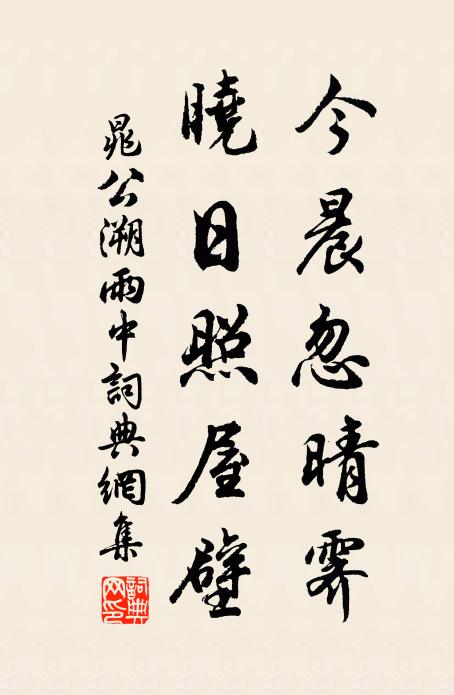 今晨忽晴霽
曉日照屋壁
晁公溯雨中詞典網集
詞典網印